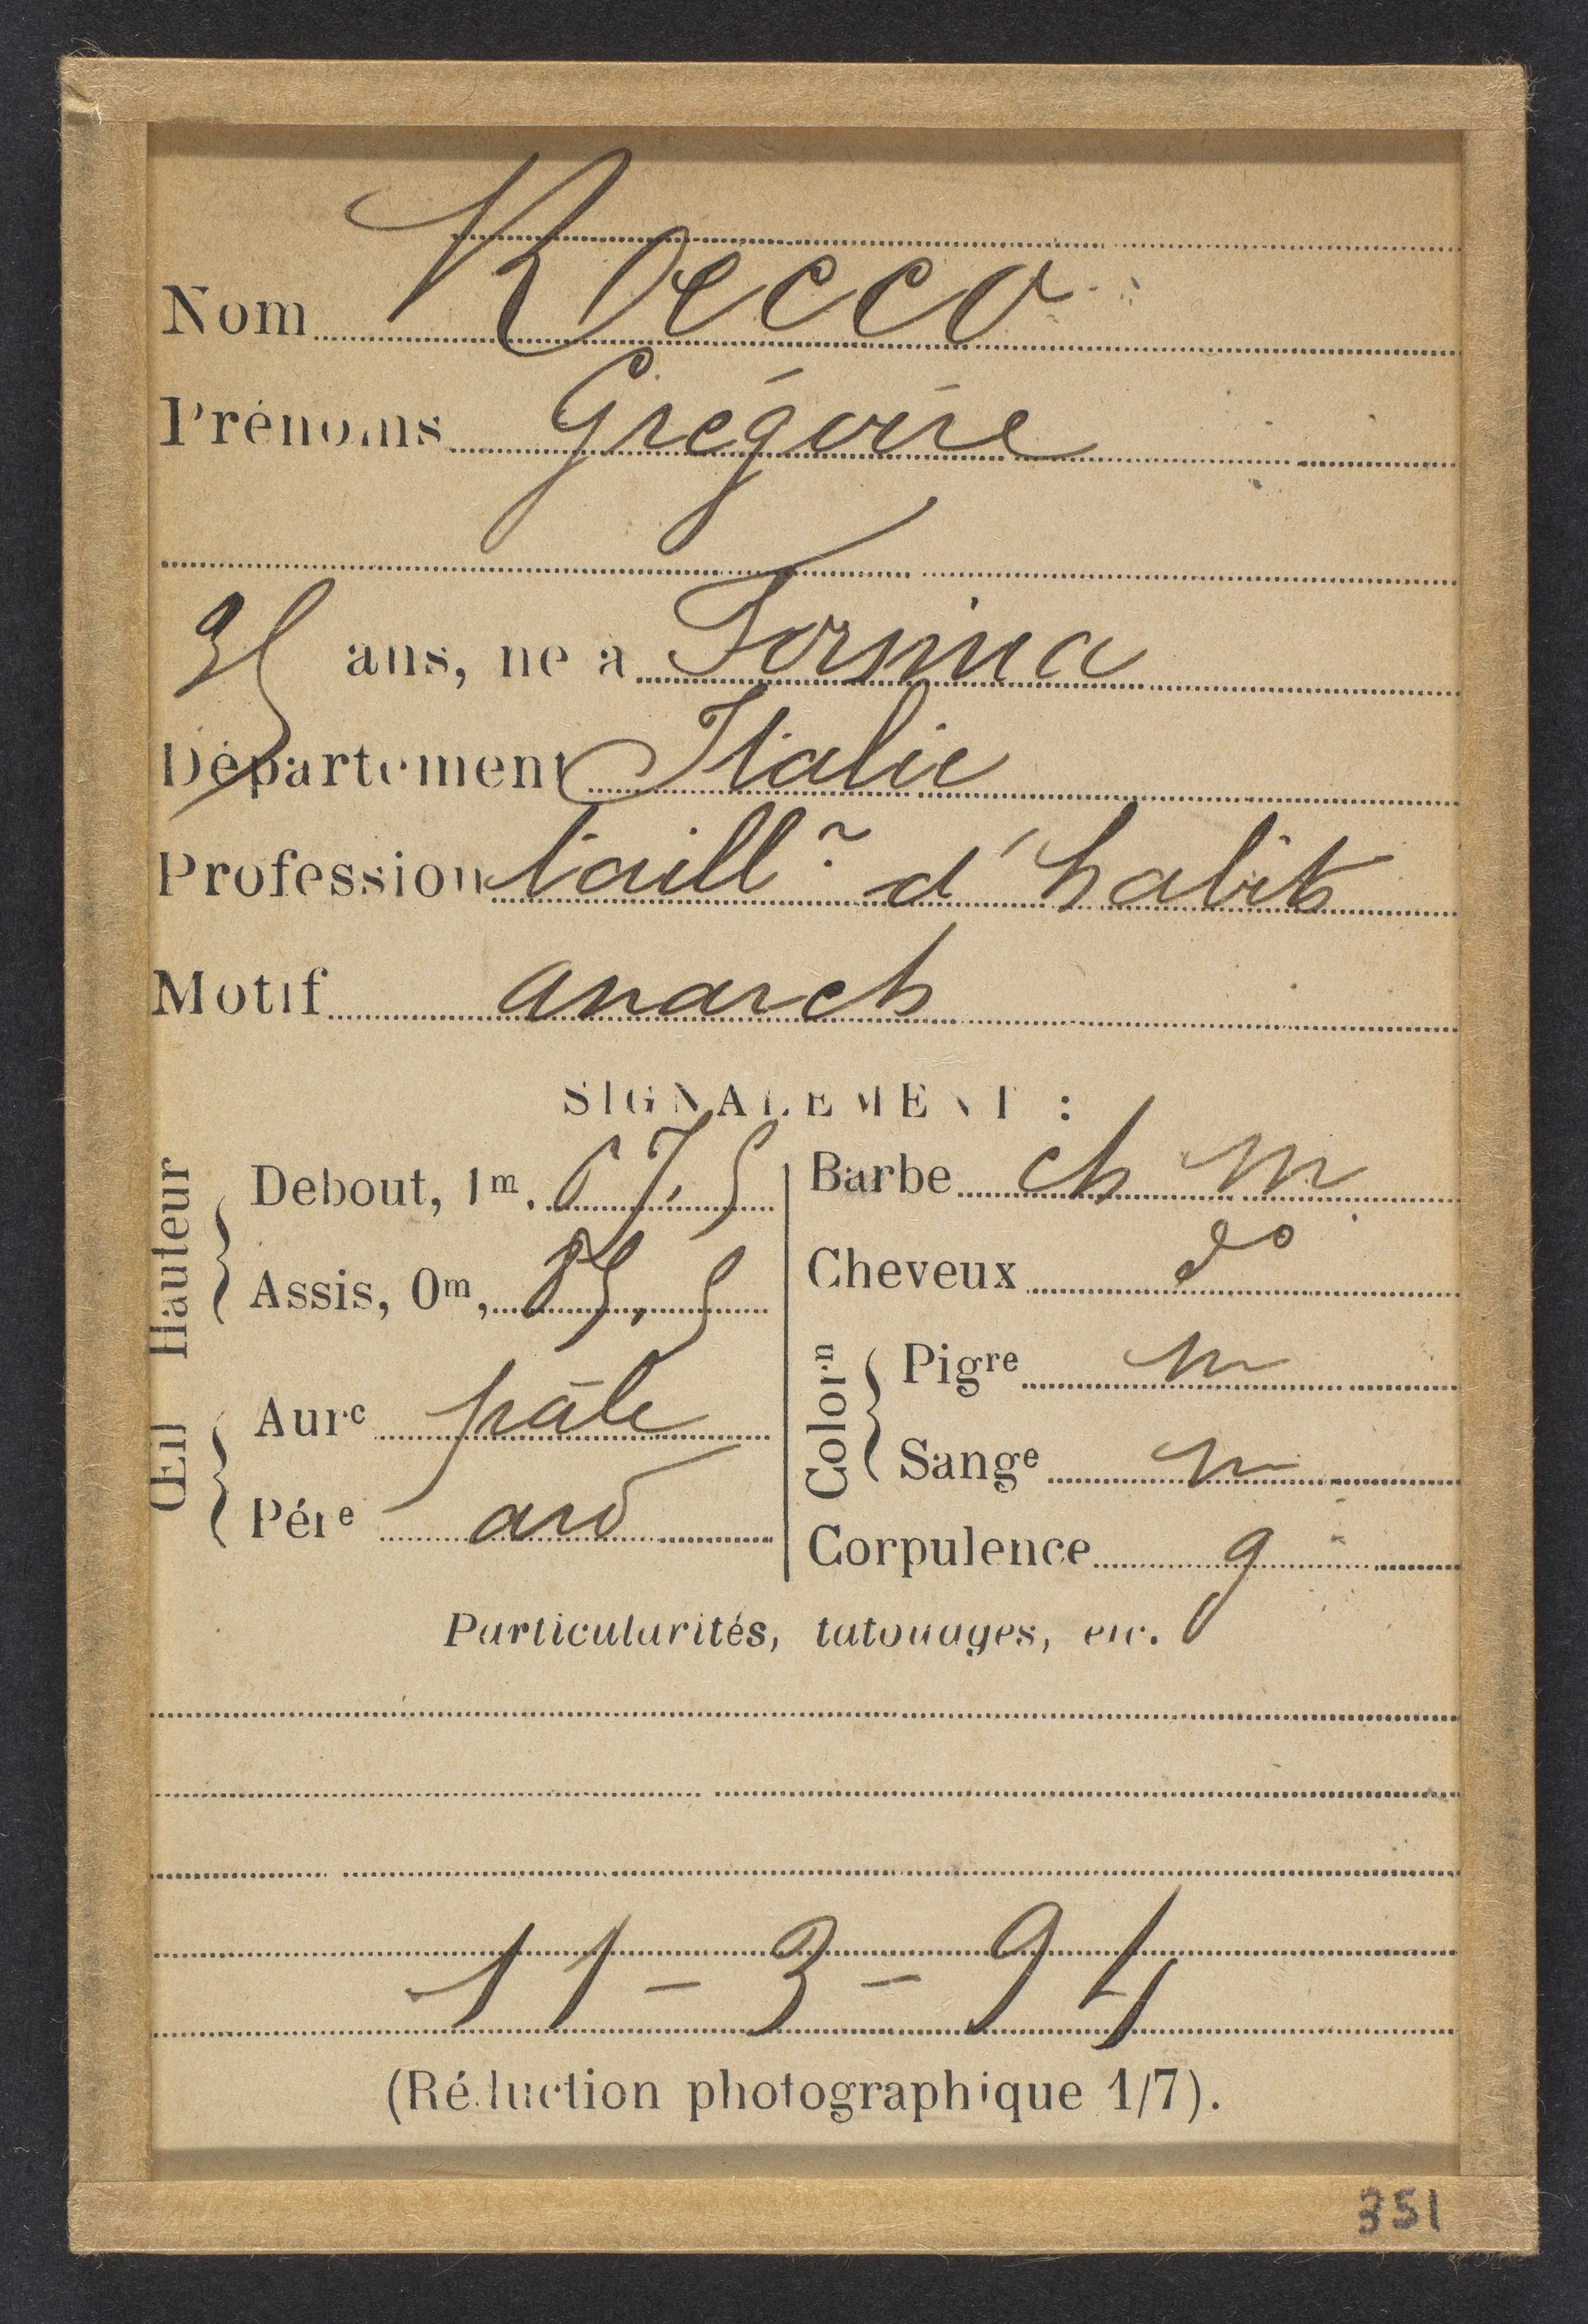 Nom Rocco
Prénoms Grégoire
35 ans, né à Formia
Département Italie
Profession taill.r d'habits
Motif anarch
SIGNALEMENT :
Hauteur
Debout, 1m, 67,5
Assis, 0m, 89,5
Œil
Aure pâle
Pére aro
Barbe ch m
Cheveux do
Colorn
Pigre m
Sange m
Corpulence g
Particularités, tatouages, etc.
11-3-94
(Réduction photographique 1/7).
351